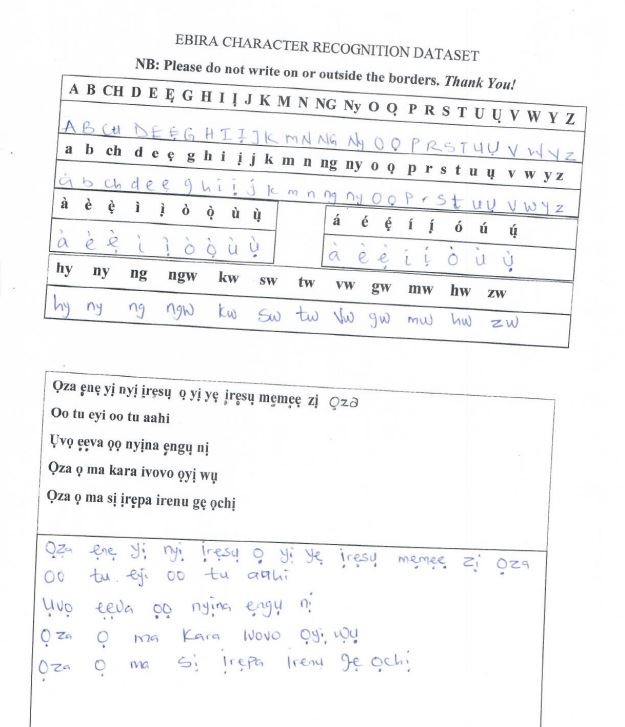 EBIRA CHARACTER RECOGNITION DATASET
NB: Please do not write on or outside the borders. Thank You!
A B CH D E Ẹ G H I Ị J K M N NG Ny O Ọ P R S T U Ụ V W Y Z
A B CH D E Ẹ G H I Ị J K M N NG Ny O Ọ P R S T U Ụ V W Y Z
a b ch d e ẹ g h i ị j k m n ng ny o ọ p r s t u ụ v w y z
a b ch d e ẹ g h i ị j k m n ng ny o ọ p r s t u ụ v w y z
à è ẹ̀ ì ị̀ ò ọ̀ ù ụ̀
à è ẹ̀ ì ị̀ ò ọ̀ ù ụ̀
á é ẹ́ í ị́ ó ú ụ́
à è ẹ̀ ì ị̀ ò ù ụ̀
hy ny ng ngw kw sw tw vw gw mw hw zw
hy ny ng ngw kw sw tw vw gw mw hw zw
Ọza ẹnẹ yị nyị ịrẹsụ ọ yị yẹ ịrẹsụ mẹmẹẹ zị ọza
Oo tu eyi oo tu aahi
Ụvọ ẹẹva ọọ nyịna ẹngụ nị
Ọza ọ ma kara ivovo ọyị wụ
Ọza ọ ma sị ịrẹpa irenu gẹ ọchị
Ọza ẹnẹ yị nyị ịrẹsụ ọ yị yẹ ịrẹsụ mẹmẹẹ zị ọza
oo tu eyi oo tu aahi
Ụvọ ẹẹva ọọ nyịna ẹngụ nị
Ọza ọ ma kara ivovo ọyị wụ
Ọza ọ ma sị ịrẹpa irenu gẹ ọchị